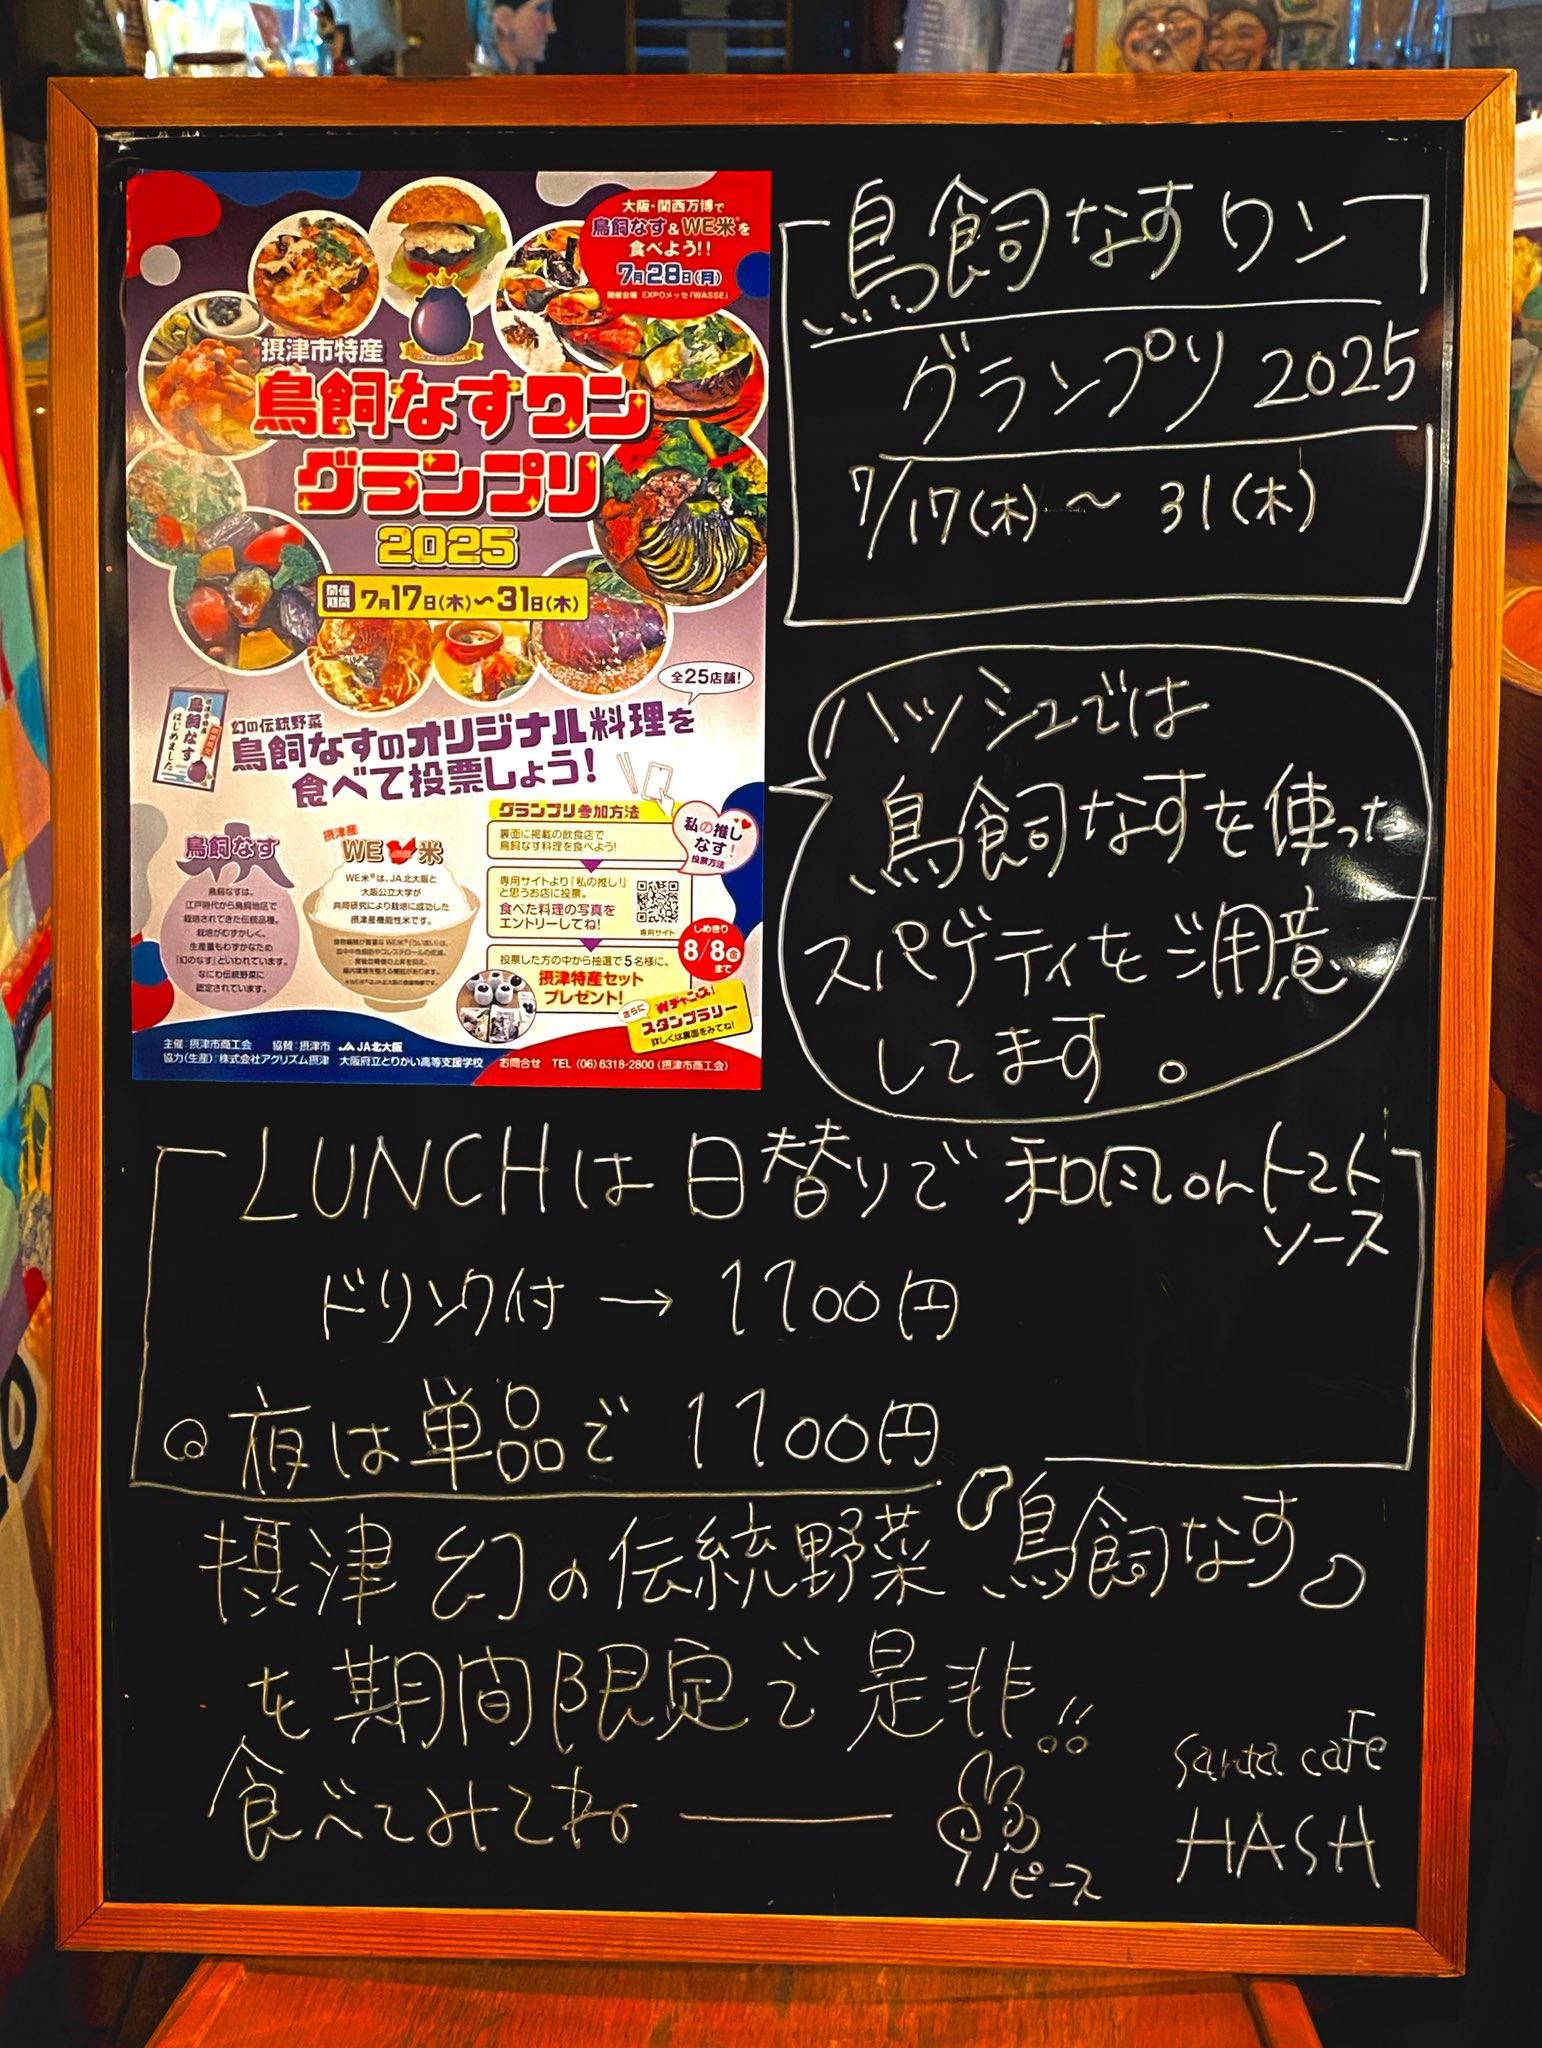 大阪・関西万博で
鳥飼なす&WE米®を
食べよう!!
7月28日(月)
開催会場 EXPOメッセ「WASSE」
摂津市特産
鳥飼なすワン
グランプリ
2025
開催期間 7月17日(木)〜31日(木)
全25店舗!
幻の伝統野菜
鳥飼なすのオリジナル料理を
食べて投票しよう!
鳥飼なす
はじめました
鳥飼なす
鳥飼なすは、
江戸時代から鳥飼地区で
栽培されてきた伝統品種。
栽培がむずかしく、
生産量もわずかなため
「幻のなす」といわれています。
なにわ伝統野菜に
認定されています。
摂津産
WE米
WE米®は、JA北大阪と
大阪公立大学が
共同研究により栽培に成功した
摂津産機能性米です。
グランプリ参加方法
裏面に掲載の飲食店で
鳥飼なす料理を食べよう!
専用サイトより「私の推し!」
と思うお店に投票。
食べた料理の写真を
エントリーしてね!
専用サイト
投票した方の中から抽選で5名様に、
摂津特産セット
プレゼント!
私の推し
なす!
投票方法
しめきり
8/8金
まで
さらに Wチャンス!
スタンプラリー
詳しくは裏面をみてね!
主催:摂津市商工会 協賛:摂津市 JA北大阪
協力(生産):株式会社アグリズム摂津 大阪府立とりかい高等支援学校 お問合せ TEL (06)6318-2800(摂津市商工会)
鳥飼なすワン
グランプリ2025
7/17(木)〜31(木)
ハッシュでは
鳥飼なすを使った
スパゲティをご用意
してます。
LUNCHは日替りで和風orトマト
ソース
ドリンク付→1100円
夜は単品で1100円
摂津幻の伝統野菜『鳥飼なす』
を期間限定で是非!!
食べてみてね――
ピース
Santa cafe
HASH